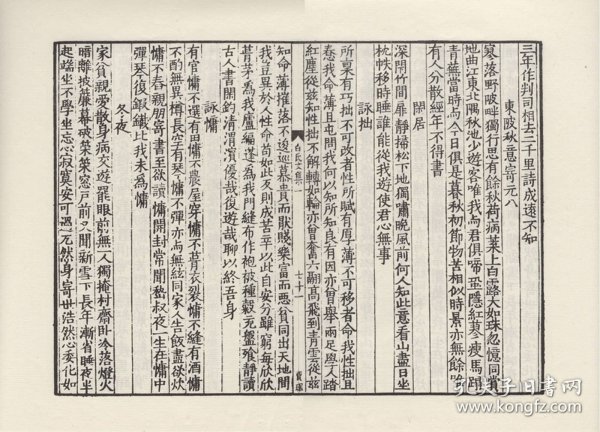 三年作判司相去三千里詩成遠不知
東陂秋意寄元八
寥落野陂畔獨行思有餘秋荷病葉上白露大如珠忽憶同賞
地曲江東北隅秋池少遊客唯我與君俱啼蛩隱紅蓼瘦馬蹋
青蕪當時與今日俱是暮秋初節物苦相似時景亦無餘唯
有人分散經年不得書
閑居
深閉竹間扉靜掃松下地獨嘯晚風前何人知此意看山盡日坐
枕帙移時睡誰能從我遊使君心無事
詠拙
所稟有巧拙不可改者性所賦有厚薄不可移者命我性拙且
惷我命薄且屯問我何以知所知良有因亦曾舉兩足學人踏
紅塵從茲知性拙不解轉如輪亦曾奮六翮高飛到青雲從茲
白氏文集一 七十一
知命薄摧落不逡巡慕貴而厭賤樂富而惡貧同出天地間
我豈異於人性命苟如此反則成苦辛以此自安分雖窮每欣欣
葺茅為我廬編蓬為我門縫布作袍被種穀充盤飧靜讀
古人書閑釣清渭濱優哉復遊哉聊以終吾身
詠慵
有官慵不選有田慵不農屋穿慵不葺衣裂慵不縫有酒慵
不酌無異樽長空有琴慵不彈亦與無絃同家人告飯盡欲炊
慵不舂親朋寄書至欲讀慵開封常聞嵇叔夜一生在慵中
彈琴復鍛鐵比我未為慵
冬夜
家貧親愛散身病交遊罷眼前無一人獨掩村齋臥冷落燈火
暗離披簾幕破策策窗戶前又聞新雪下長年漸省睡夜半
起端坐不學坐忘心寂寞安可過兀然身寄世浩然心委化如
孔夫子旧书网
www.kongfz.com